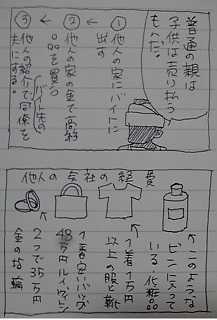 普通の親は
子供は売り払う
もんだ。
①他人の家にバイトに
出す
②他人の家の金で高級
品を買う
バイト先の
③他人の紹介で同僚を
夫にする。
他人の会社の経費
↑このような
ビンに入って
いる化粧品
↑1着1万円
以上の服と靴
↑1番安いバッグ
48万円ルイヴィトン
↑
2つで35万円
金の指輪